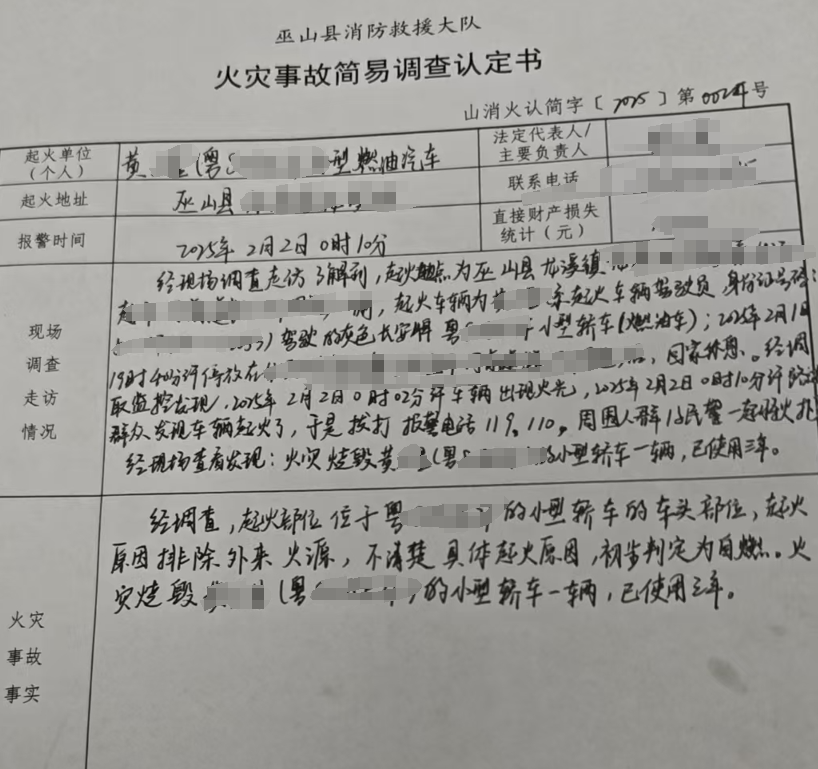 巫山县消防救援大队
火灾事故简易调查认定书
山消火认简字〔2025〕第0024号
起火单位(个人) 黄 (粤S 型燃油汽车 法定代表人/主要负责人
起火地址 巫山县 联系电话
报警时间 2025年2月2日0时10分 直接财产损失统计(元)
现场调查走访情况
经现场调查走访了解到,起火地点为巫山县龙溪镇
起火车辆为黄 系起火车辆驾驶员,身份证号码:
驾驶的灰色长安牌粤S 小型轿车(燃油车);2025年2月1日
19时40分许停放在 回家休息。经调
取监控发现,2025年2月2日0时02分许车辆出现火光,2025年2月2日0时10分许
群众发现车辆起火了,于是拨打报警电话119、110。周围人群 民警一起将火扑
经现场查看发现:火灾烧毁黄 (粤S 的小型轿车一辆,已使用三年。
火灾事故事实
经调查,起火部位位于粤 的小型轿车的车头部位,起火
原因排除外来火源,不清楚具体起火原因,初步判定为自燃。火
灾烧毁 (粤S ,的小型轿车一辆,已使用三年。